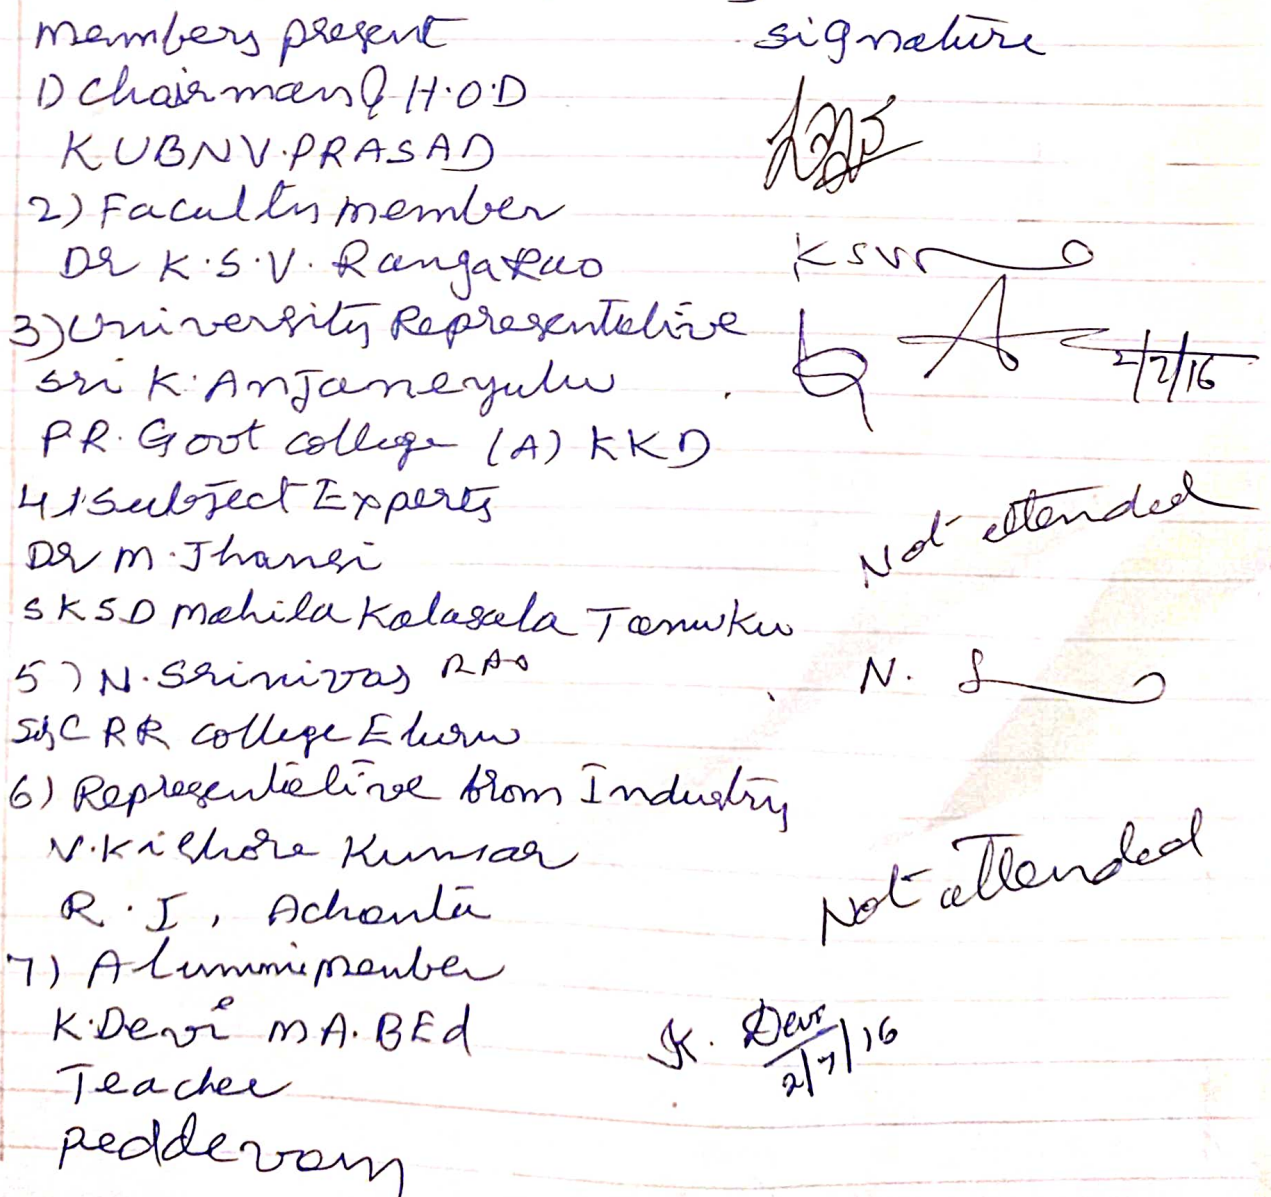 members present signature
1) Chairman & H.O.D
K U B N V. PRASAD
2) Faculty member
Dr K.S.V. Ranga Rao K S V
3) University Representative
Sri K. Anjaneyulu 2/7/16
P.R. Govt college (A) KKD
4) Subject Experts Not attended
Dr M. Jhansi
S K S D Mahila Kalasala Tanuku
5) N. Srinivas RAO N. S
Sir C R R college Eluru
6) Representative from Industry
N. Kishore Kumar Not attended
R. I, Achanta
7) Alumni member
K. Devi M A. BEd K. Devi 2/7/16
Teacher
peddevam